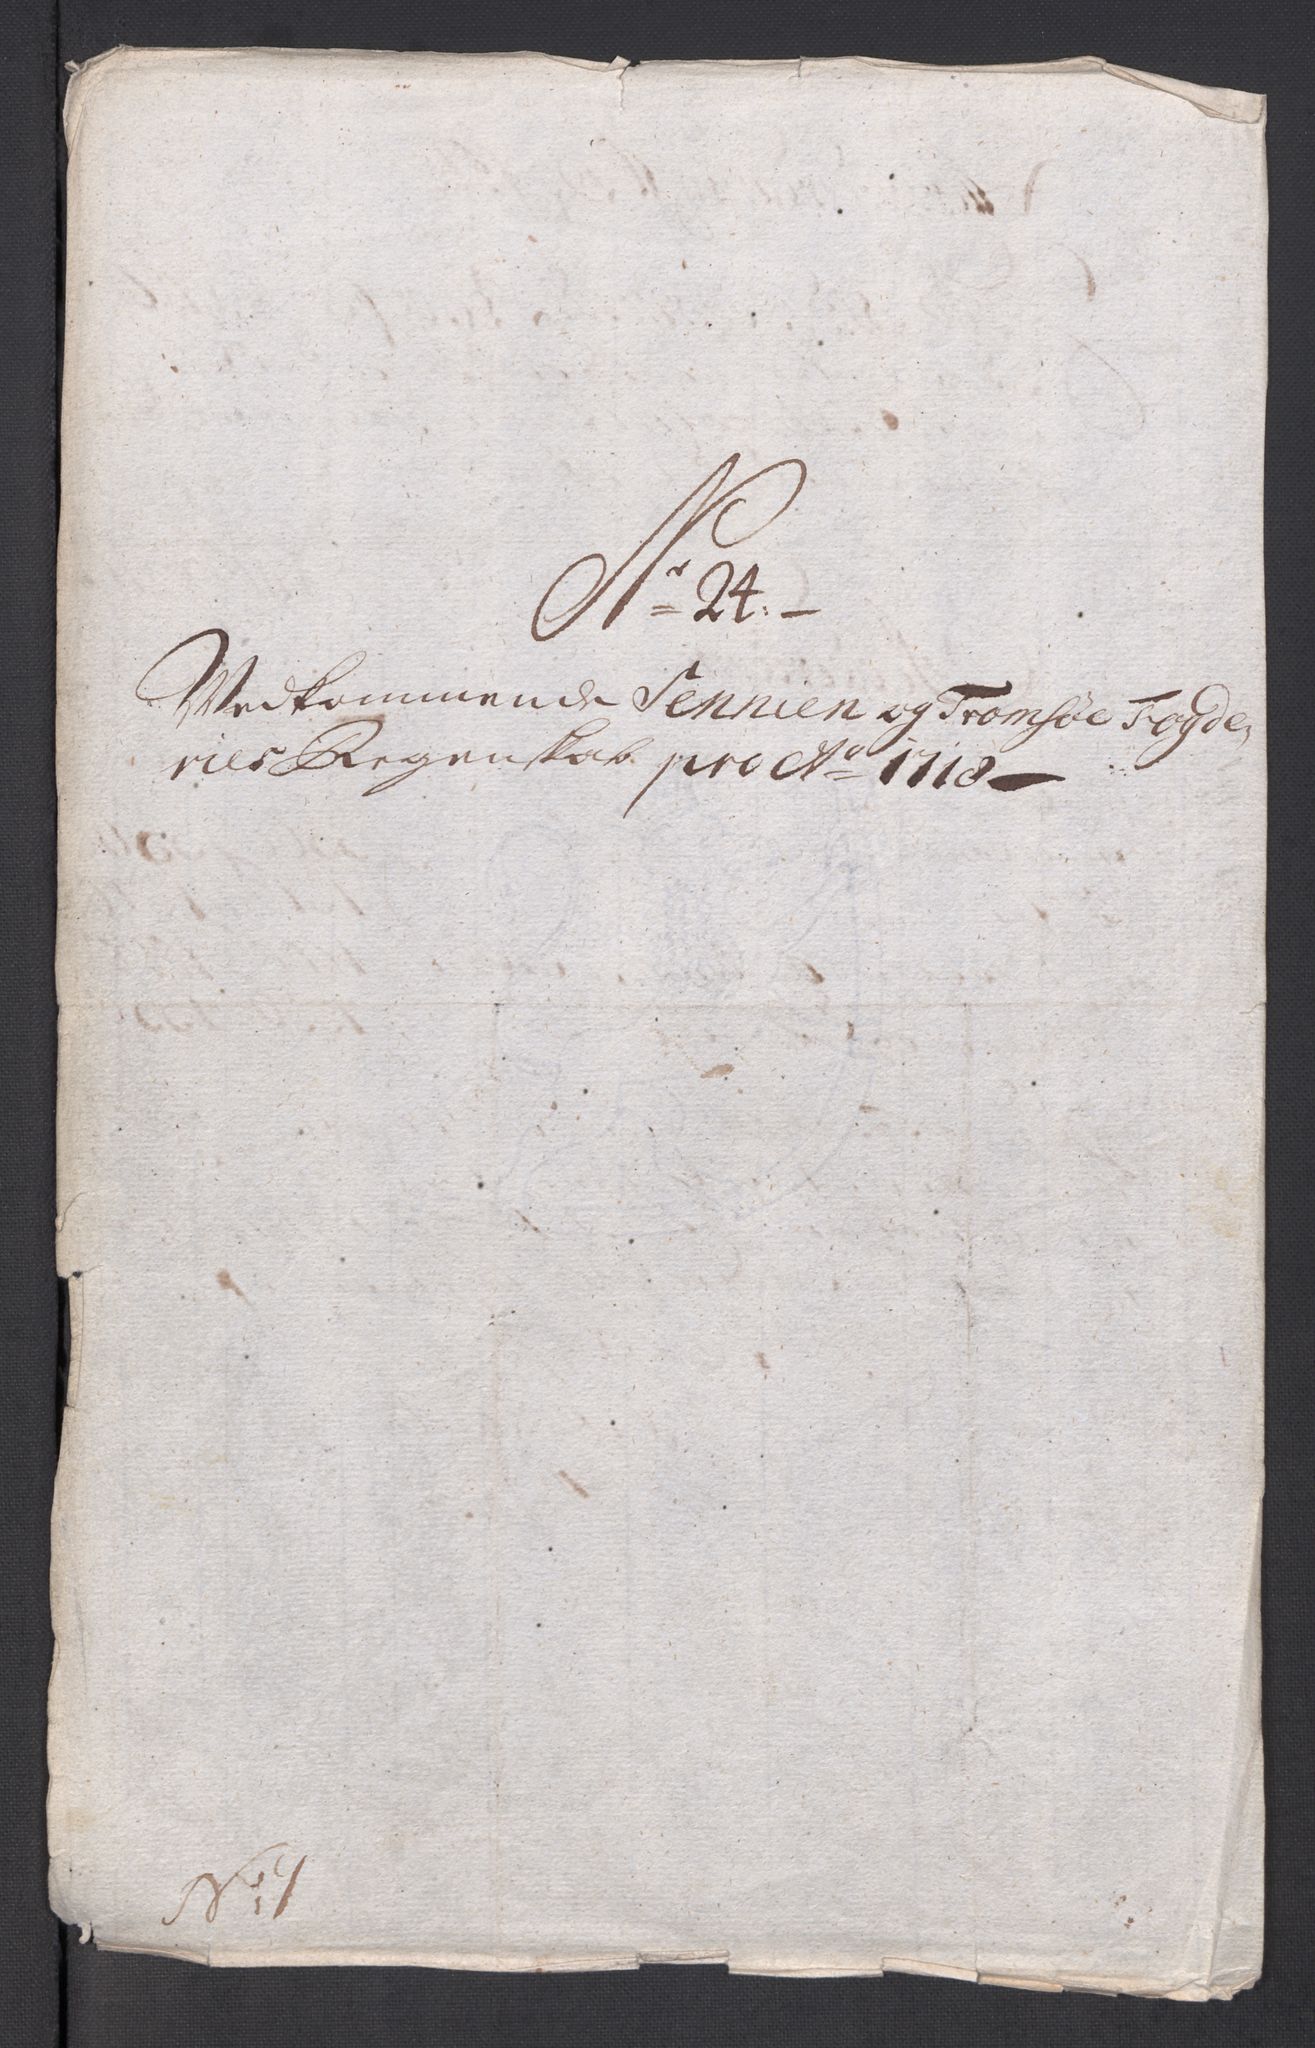 No 24. —
Wedkommende Sennien og Tromsøe Fogde,
ries Regenskab pro Ao 1718 —
No